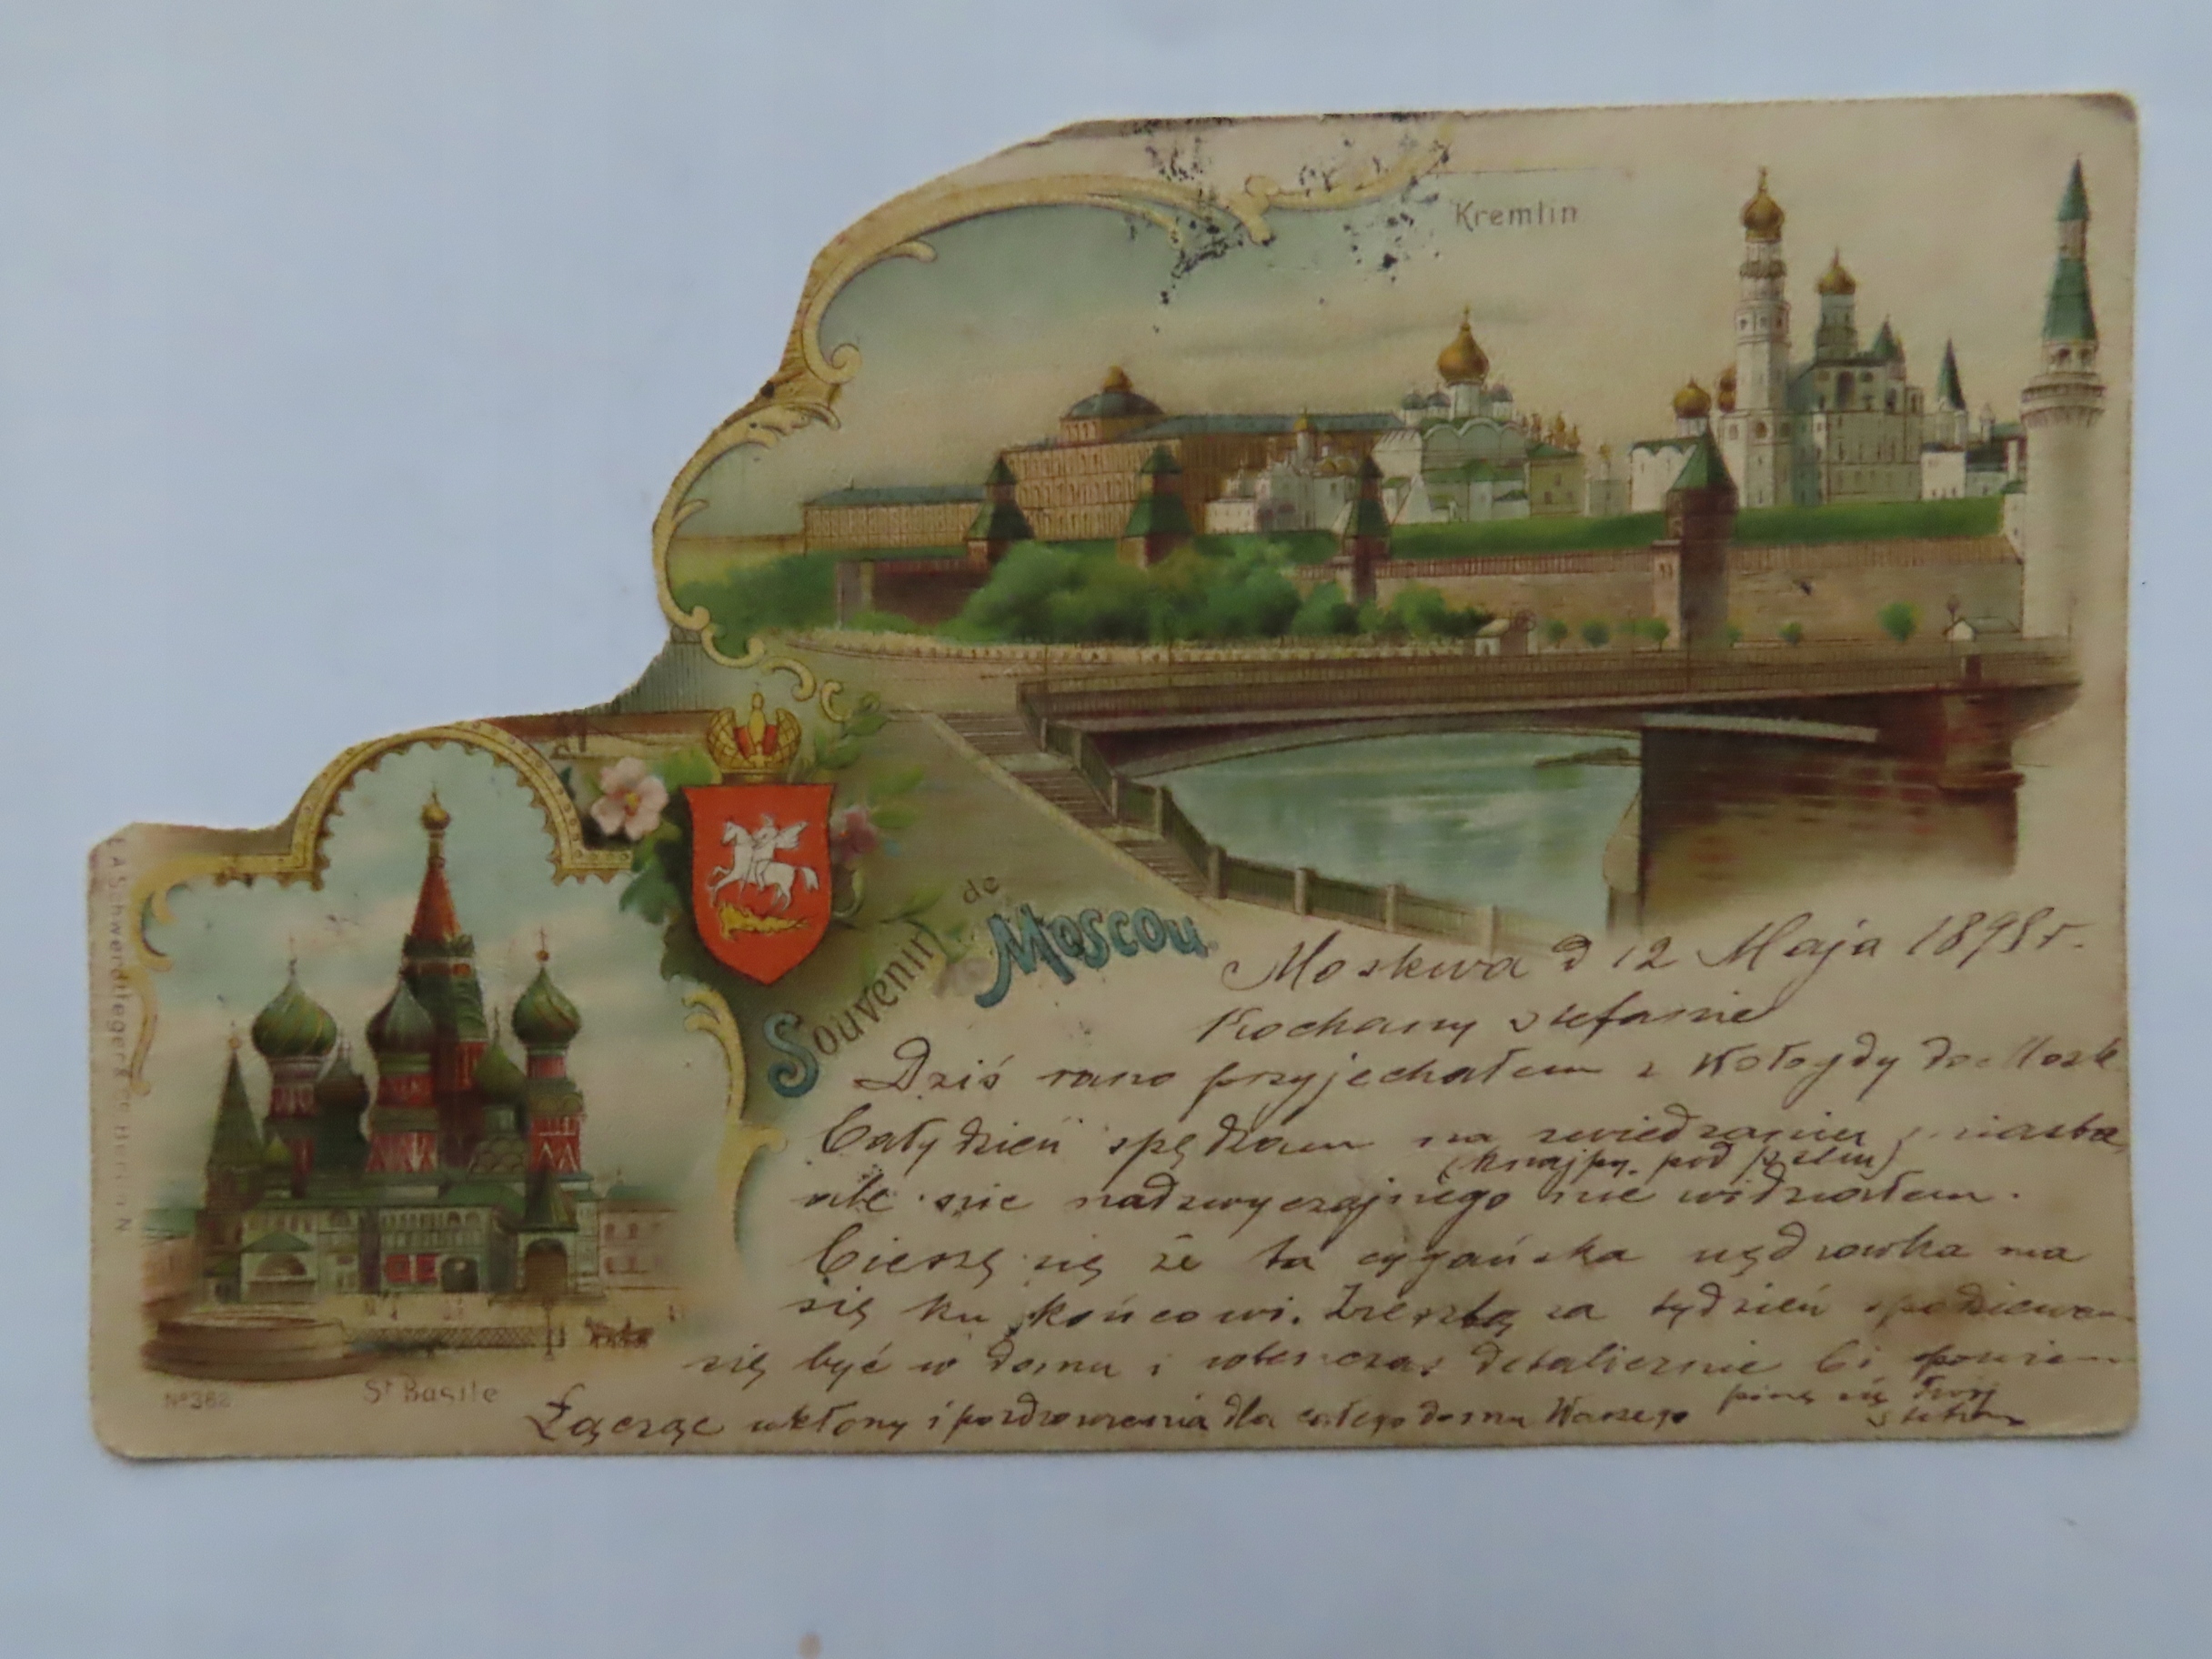 Kremlin
Souvenir de Moscou.
St Basile
No 362
Moskwa d 12 Maja 1898 r.
Kochany Stefanie
Dziś rano przyjechałem z do Mosk
Cały dzień spędzam na zwiedzaniu miasta,
(knajpy. pod)
ale nic nadzwyczajnego nie widziałem.
Cieszę się że ta cygańska wędrowka ma
się ku końcowi. Zresztą za tydzień spodziewam
się być w domu i wtenczas detalicznie Ci powiem
Łącząc ukłony i pozdrowienia dla całego domu Waszego piszę się Twój